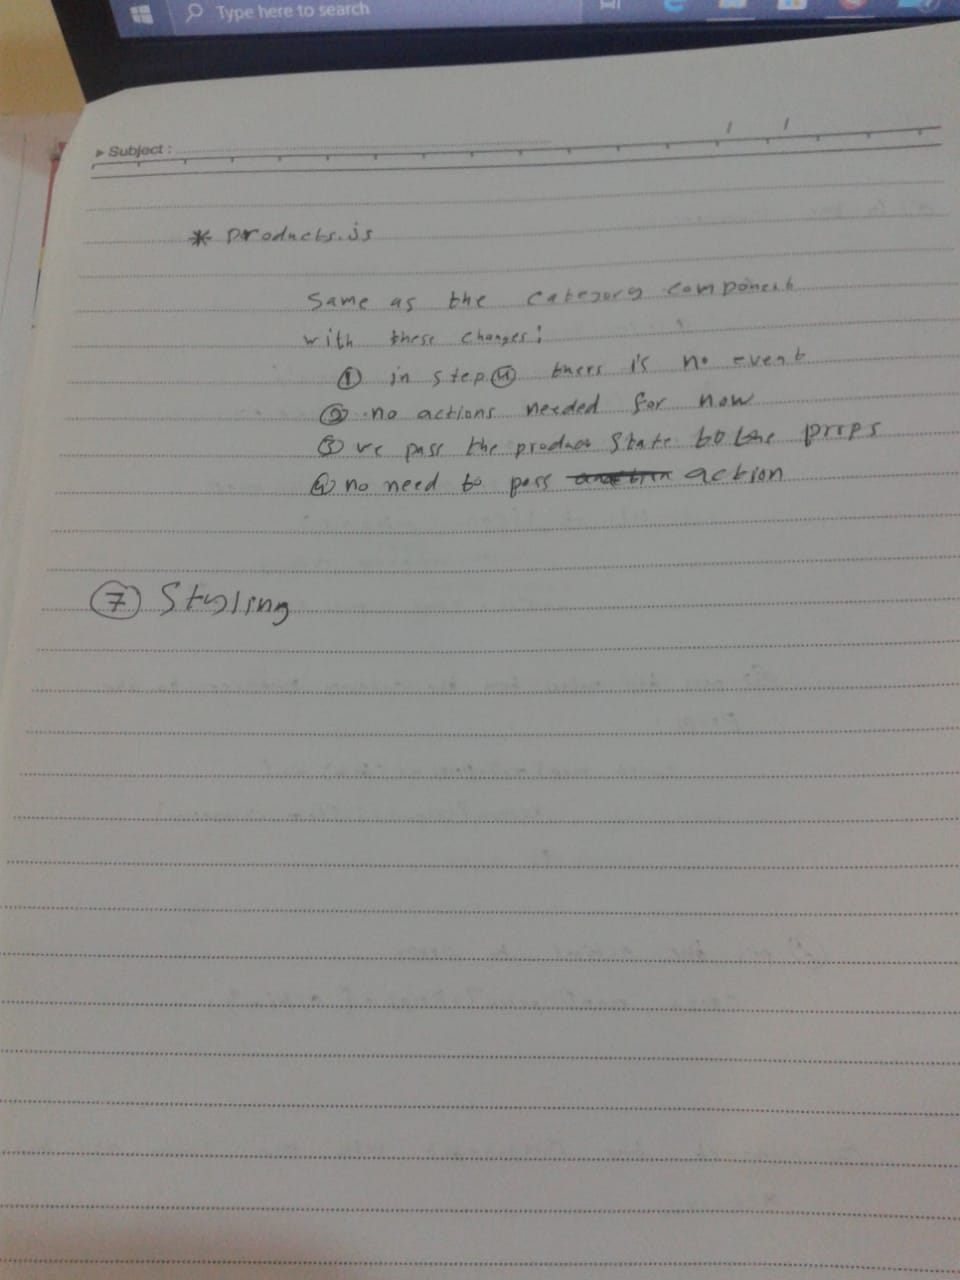 Type here to search
Subject :
* products.js
Same as the category component
with these changes:
① in step ④ thers is no event
② no actions needed for now
③ we pass the product state to the props
④ no need to pass action
⑦ Styling